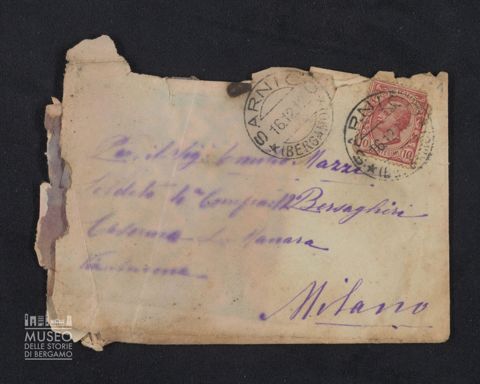 SARNICO
16.12
(BERGAMO)
SARNICO
16.12
10 10
Per il Sig. Mazzi
Soldato 4ª Comp 12 Bersaglieri
Caserma L. Manara
Milano
MUSEO
DELLE STORIE
DI BERGAMO